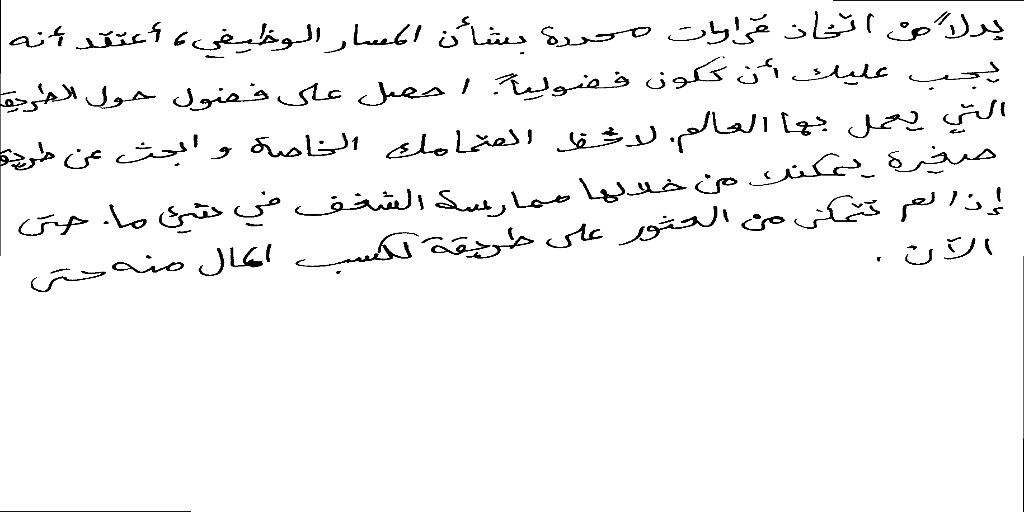 بدلاً من اتخاذ قرارات محددة بشأن المسار الوظيفي، أعتقد أنه
يجب عليك أن تكون فضولياً. احصل على فضول حول الطريقة
التي يعمل بها العالم. لاحظ اهتمامك الخاصة و ابحث عن طريقة
صغيرة يمكنك من خلالها ممارسة الشغف في شيئ ما. حتى
إذا لم تتمكن من العثور على طريقة لكسب المال منه حتى
الآن .